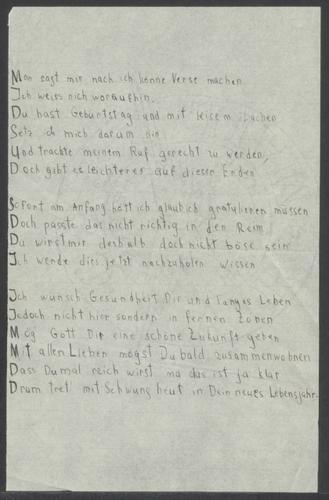 Man sagt mir nach ich könne Verse machen
Ich weiss nich woraufhin.
Du hast Geburtstag und mit leisem Lachen
Setz ich mich darum hin
Und trachte meinem Ruf gerecht zu werden,
Doch gibt es leichteres auf dieser Erden

Sofort am Anfang hätt ich glaub ich gratulieren müssen
Doch passte das nicht richtig in den Reim
Du wirst mir deshalb doch nicht böse sein
Ich werde dies jetzt nachzuholen wissen

Ich wünsch Gesundheit Dir und langes Leben
Jedoch nicht hier sondern in fernen Zonen
Mög Gott Dir eine schöne Zukunft geben
Mit allen Lieben mögst Du bald zusammenwohnen
Dass Du mal reich wirst na das ist ja klar
Drum tret mit Schwung heut in Dein neues Lebensjahr.